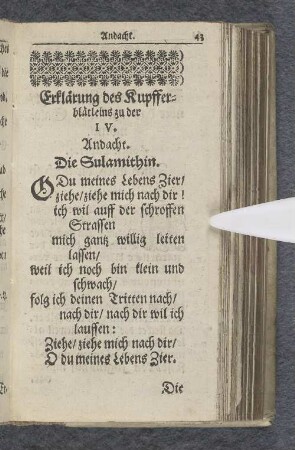 Andacht. 43
Erklärung des Kupffer-
blätleins zu der
IV.
Andacht.
Die Sulamithin.
O Du meines Lebens Zier/
ziehe/ziehe mich nach dir!
ich wil auff der schroffen
Strassen
mich gantz willig leiten
lassen/
weil ich noch bin klein und
schwach/
folg ich deinen Tritten nach/
nach dir/ nach dir wil ich
lauffen:
Ziehe/ ziehe mich nach dir/
O du meines Lebens Zier.
Die